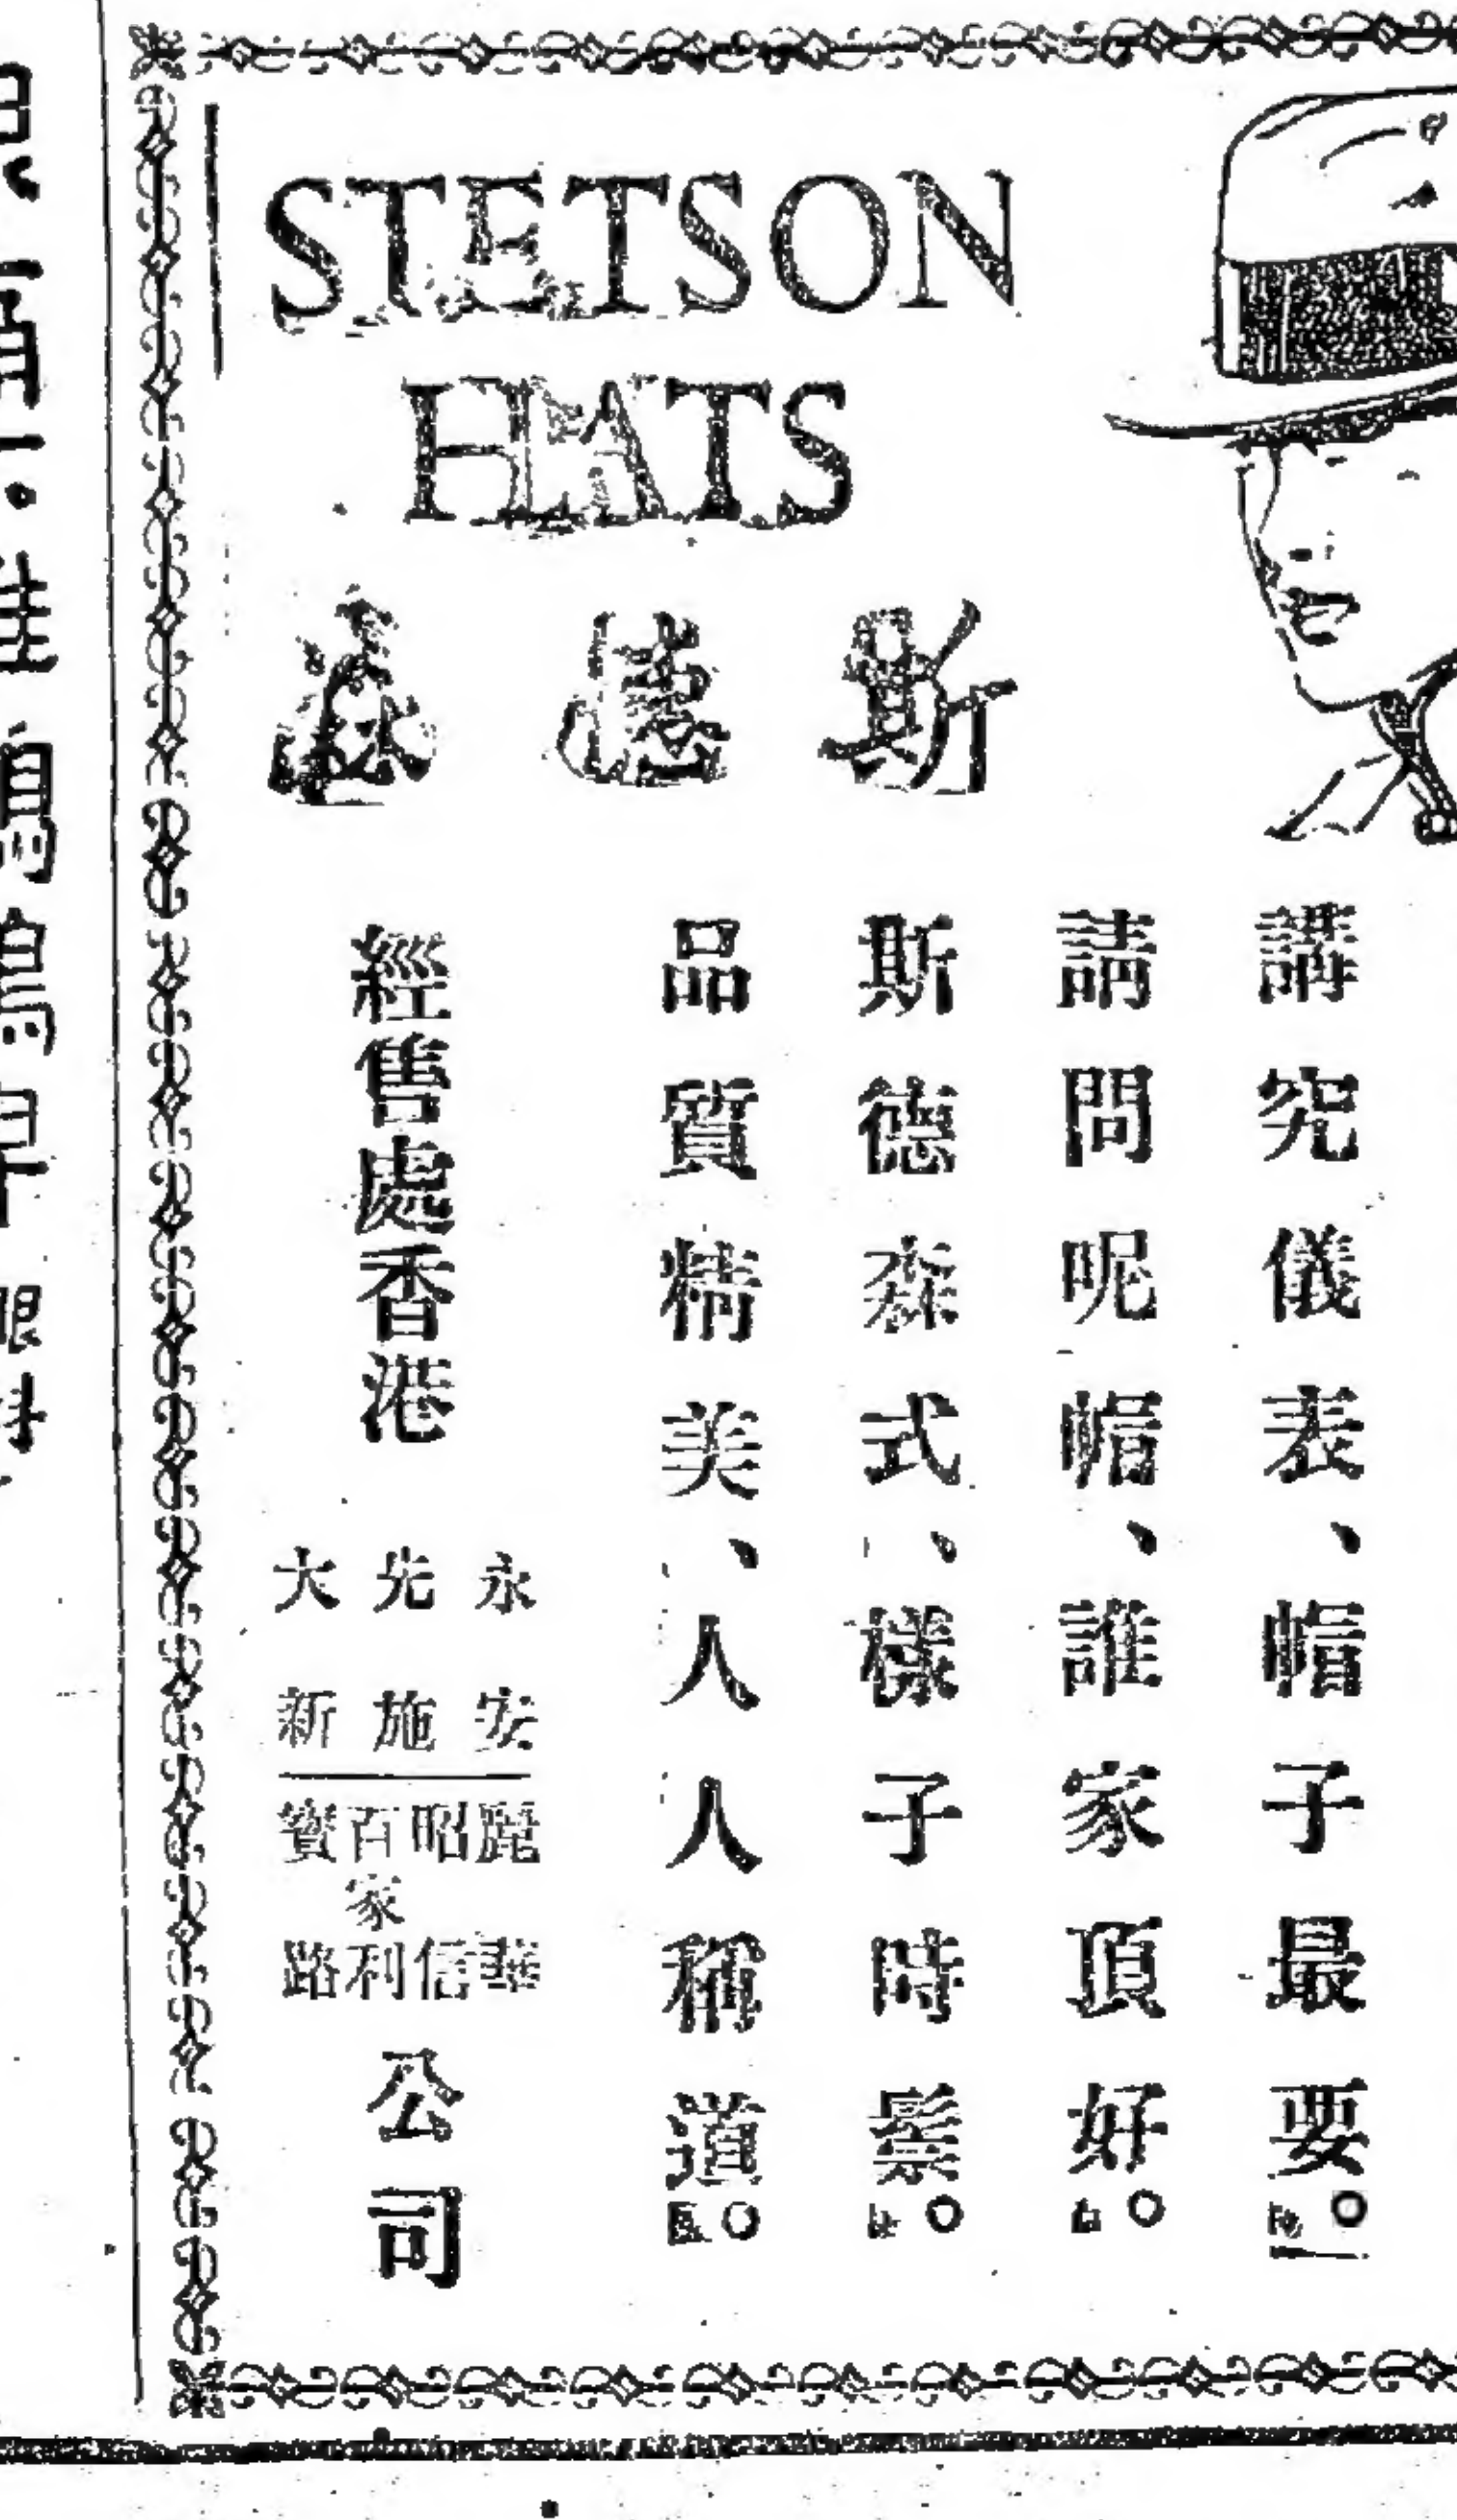 STETSON
HATS
斯德森
講究儀表、帽子最要。
請問呢帽、誰家頂好。
斯德森式、樣子時髦。
品質精美、人人稱道。
經售處香港
永安
先施
大新
麗華
昭信
百家利
寶路
公司